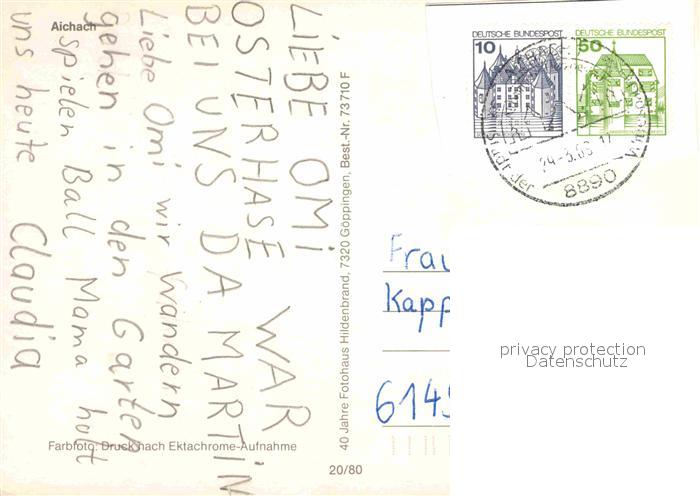 Aichach
LIEBE OMi
OSTERHASE WAR
BEI UNS DA MARTiN
Liebe Omi wir wandern
gehen in den Garten
spielen Ball Mama holt
uns heute Claudia
Farbfoto: Druck nach Ektachrome-Aufnahme
40 Jahre Fotohaus Hildenbrand, 7320 Göppingen, Best.-Nr. 73710 F
20/80
DEUTSCHE BUNDESPOST
10
DEUTSCHE BUNDESPOST
50
Stadt der
8890
Frau
Kapp
6145
privacy protection
Datenschutz